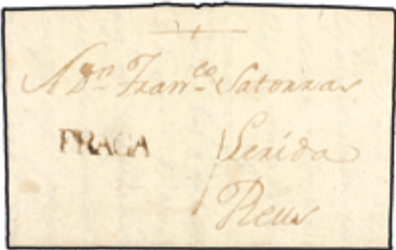 A Dn Franco Satorras
FRAGA
Lerida
Reus